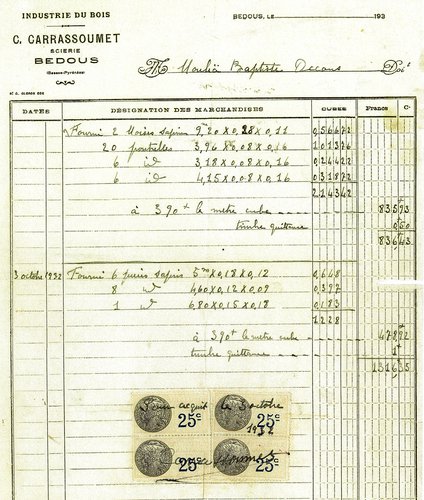 INDUSTRIE DU BOIS
C. CARRASSOUMET
SCIERIE
BEDOUS
(Basses-Pyrénées)
BEDOUS, le 193
M Baptiste Doit
DATES DÉSIGNATION DES MARCHANDISES CUBES Francs C.
Fourni 2 sapins 9,20 x 0,28 x 0,11 0,56672
20 poutrelles 3,96 x 0,08 x 0,16 1,01376
6 id 3,18 x 0,08 x 0,16 0,24422
6 id 4,15 x 0,08 x 0,16 0,31872
2,14342
à 390 f le metre cube 835 93
timbre quittance 0 50
836 43
3 octobre 1932 Fourni 6 sapins 5 m 00 x 0,18 x 0,12 0,648
8 id 4,60 x 0,12 x 0,09 0,397
1 id 6,80 x 0,15 x 0,18 0,183
1,228
à 390 f le metre cube 478 92
timbre quittance 1
1316 35
Pour acquit le 3 octobre
1932
25c 25c
25c 25c